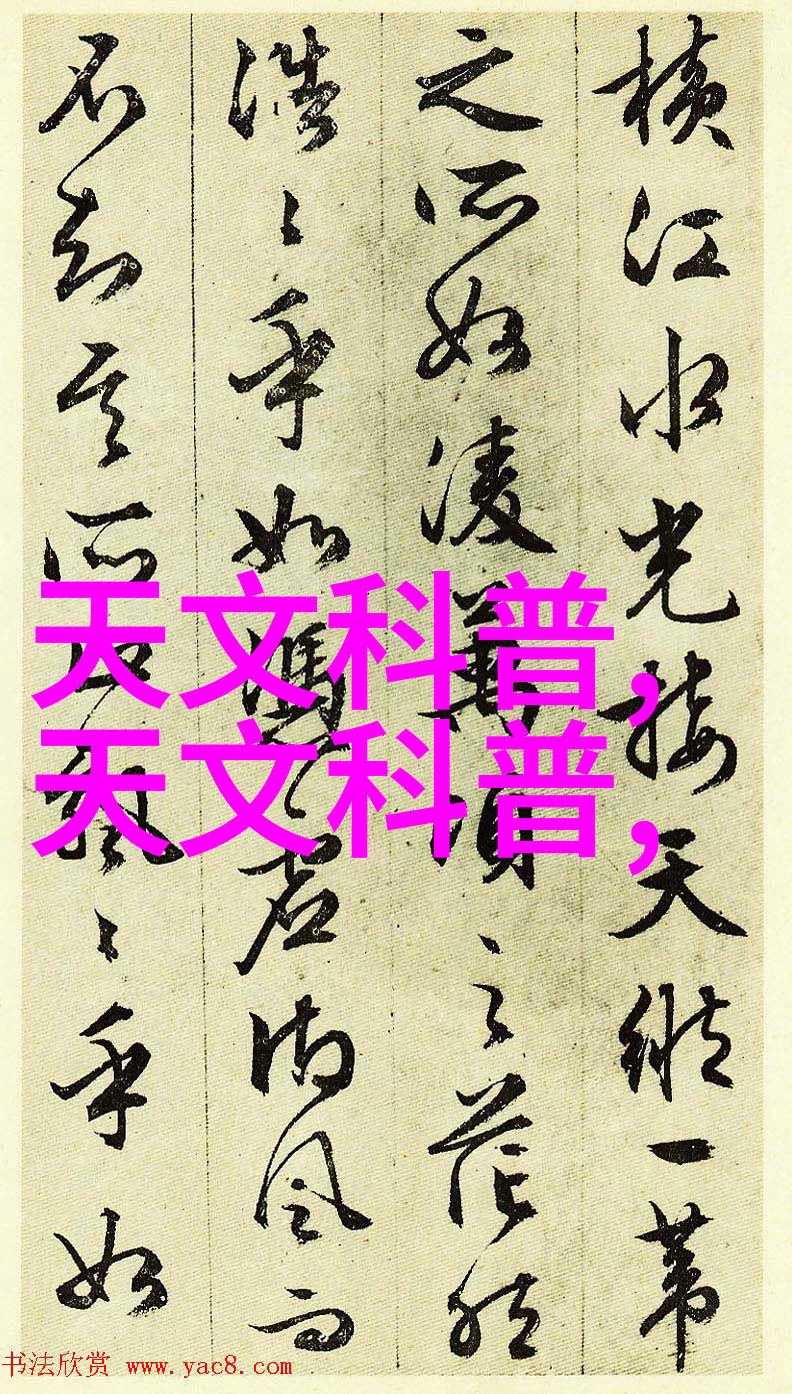 横江水光接天纵一苇
之所如凌万顷之茫然
浩〻乎如冯虚御风而
不知其所止飘〻乎如
天文科普,
天文科普,
书法欣赏 www.yac8.com